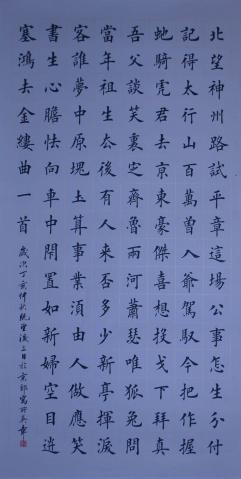 北望神州路試平章這場公事怎生分付
記得太行山百萬曾入爺駕馭今把作握
虵騎虎君去京東豪傑喜想投戈下拜真
吾父談笑裏定齊魯兩河蕭瑟唯狐兔問
當年祖生去後有人來否多少新亭揮淚
客誰夢中原塊土算事業須由人做應笑
書生心膽怯向車中閉置如新婦空目送
塞鴻去金縷曲一首
歲次丁亥仲秋